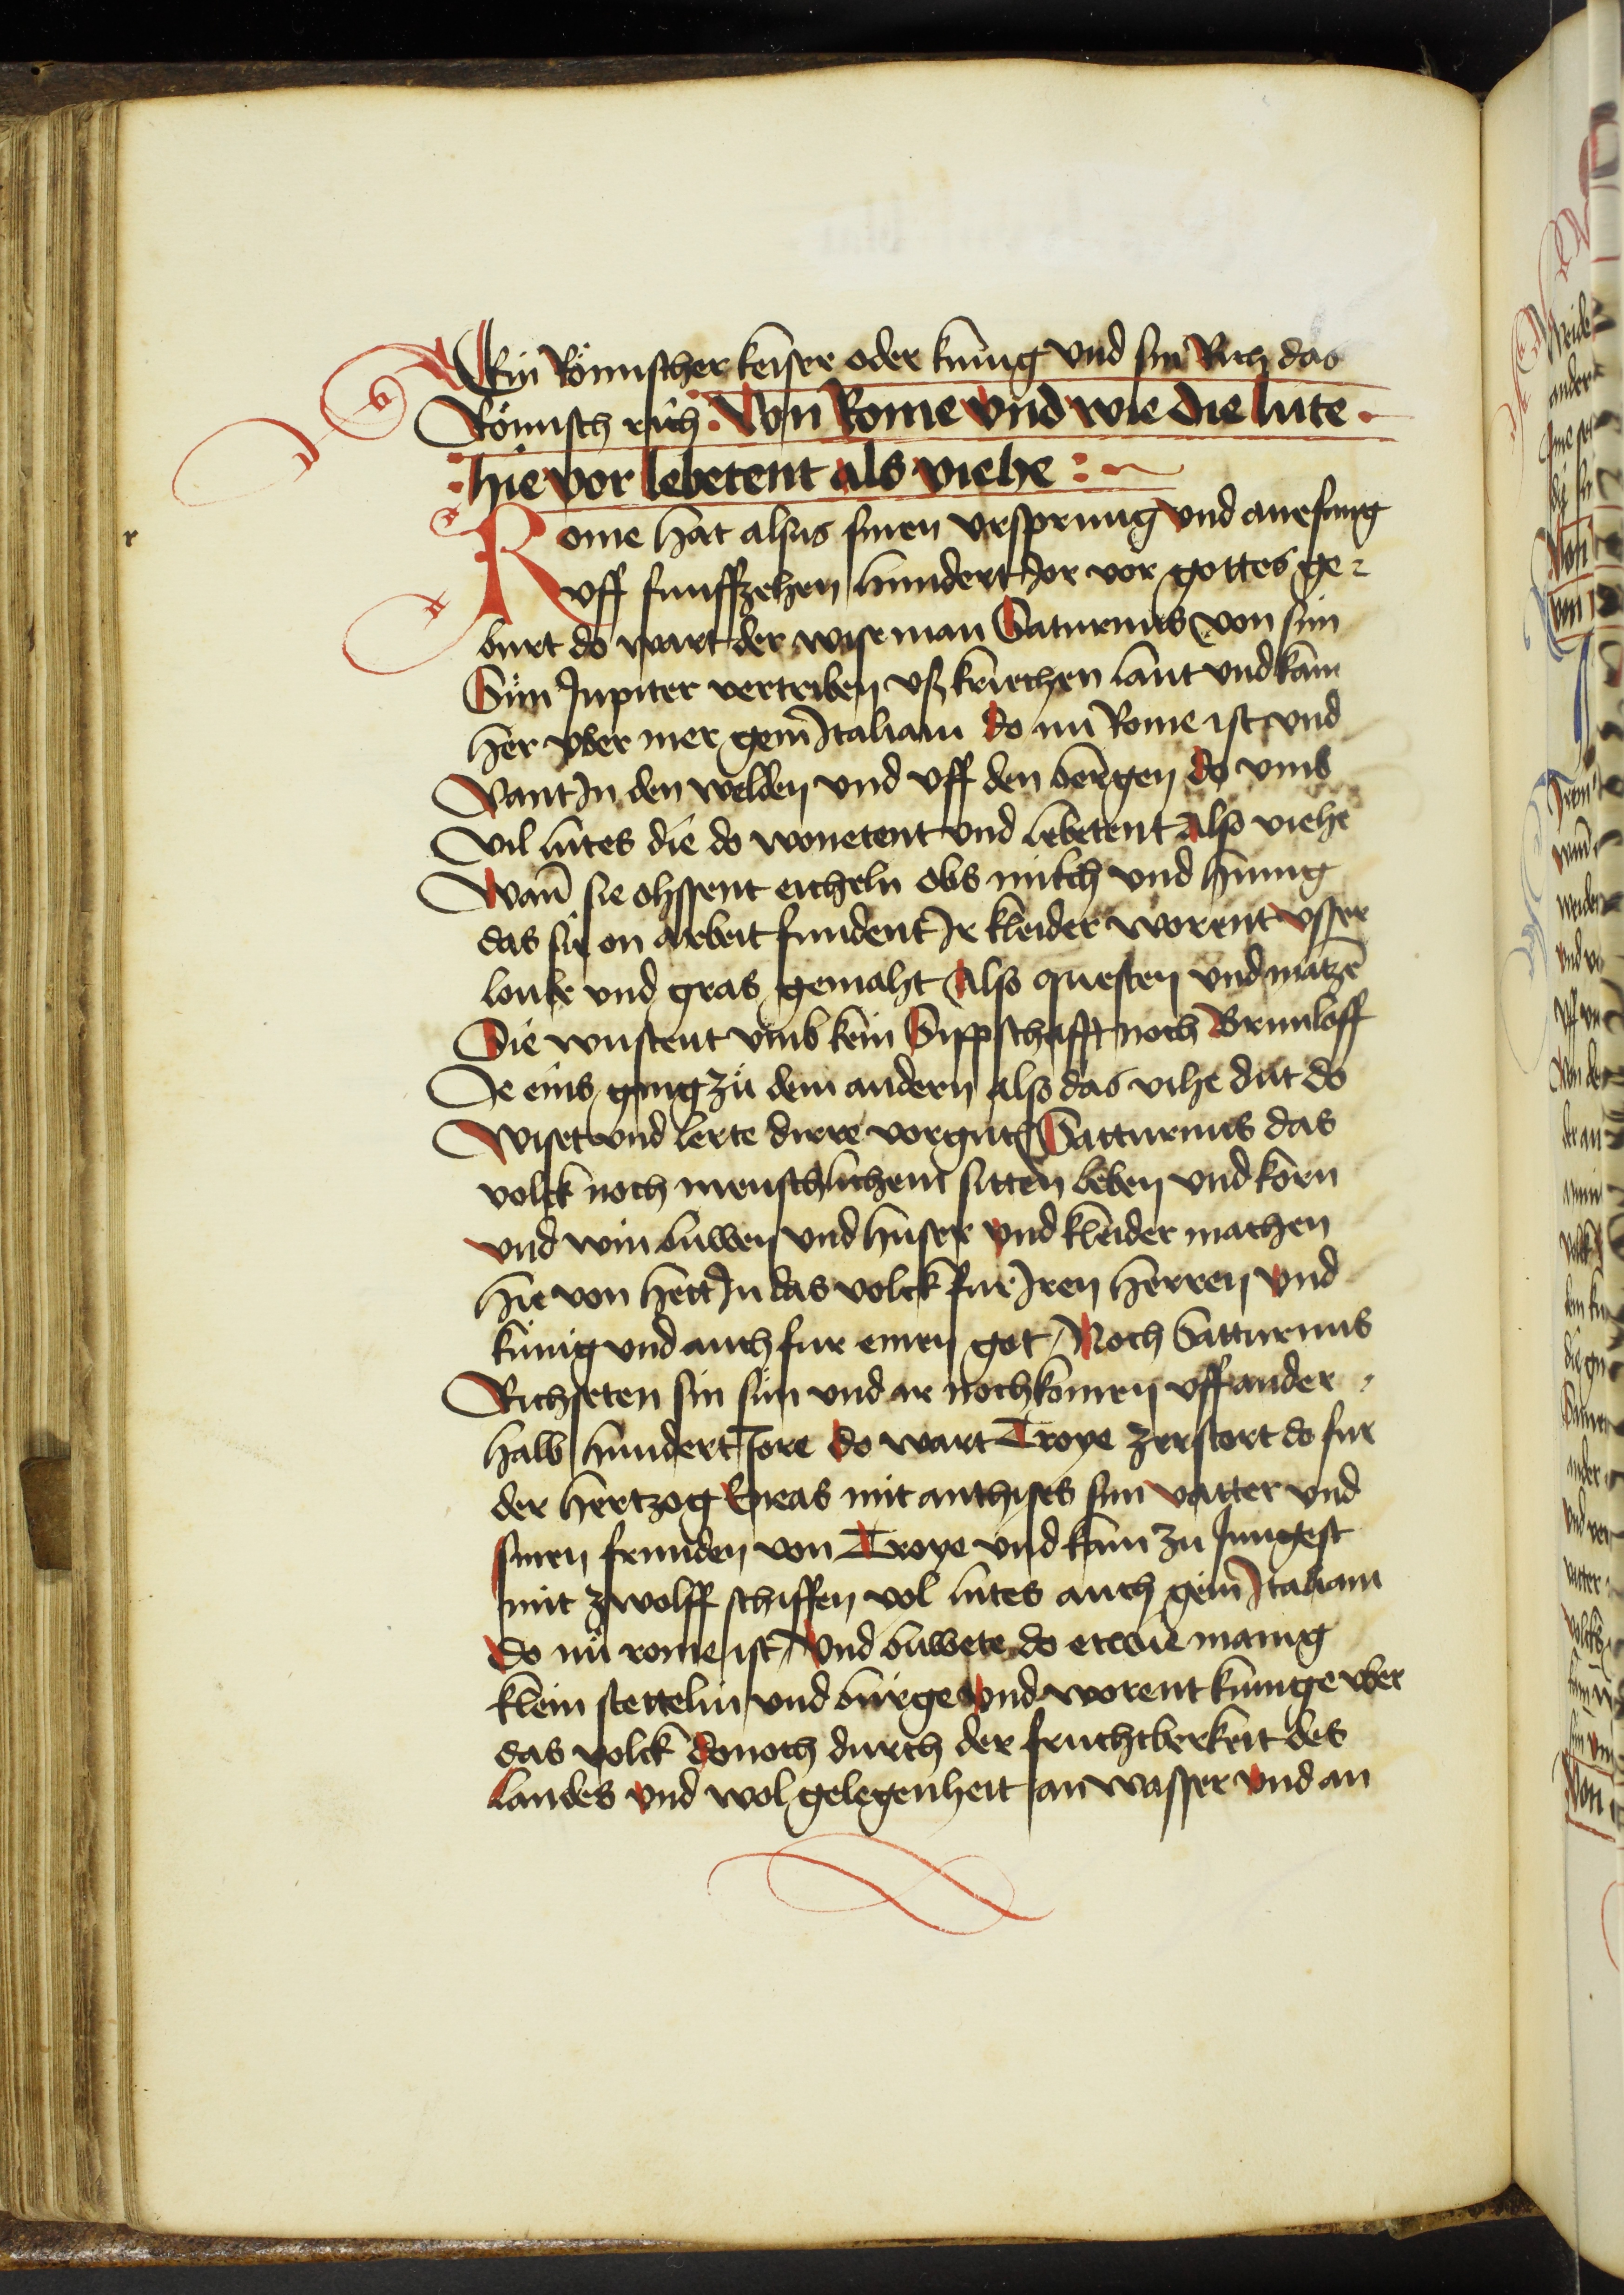 Ein Römischer keiser oder kunig vnd sin Rich das
Römisch rich. Von Rome vnd wie die lute.
hie vor lebetent als viehe
Rome hat alsus sinen vrsprung vnd anefang
vff funffzehen hundert Jor vor gottes ge-
burt do wart der wise man Saturnus von sim
Sun Jupiter vertriben vß kriechen lant vnd kam
her vber mer gein Jtaliam do nü Rome ist vnd
Vant Jn den welden vnd vff den bergen do vmb
Vil lütes die do wonetent vnd lebetent also viehe
Wan̄ sie ohssent eicheln obs milch vnd hunig
das sie on arbeit fundent Jr kleider worent vsser
loube vnd gras gemaht Also questen vnd matzē
Die wustent vmb kein Sippschafft noch Brunloff
Je eins ging zü dem andern also das vihe düt do
Wiset vnd lerte dirre vorgnt Satturnus das
volck noch menschlichem sitten leben vnd korn
vnd win buwen vnd huser vnd kleider machen
hie von hett Jn das volck fur Jren herren vnd
künig vnd auch fur einen got Noch Satturnus
Richseten sin sün vnd ir nochkomen vff ander
halb hundert Jore do wart Troye zerstort do fur
der hertzog Eneas mit anchises sim vatter vnd
sinen frunden von Troye vnd kam zu Jungest
mit zwolff schiffen vol lütes auch gein Jtaliam
do nü rome ist Vnd buwete do etwie manig
klein stettelin vnd bürge vnd worent kunige vber
das volck donoch durch der fruchtberkeit des
landes vnd wol gelegenheit an wasser vnd an